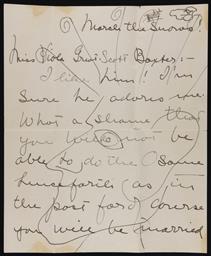 March the Snows!
Miss Viola Irene Scott Baxter:-
I like him! I'm
sure he adores me.
What a shame that
you will not be
able to do the same
henceforth as in
the past for of course
you will be married